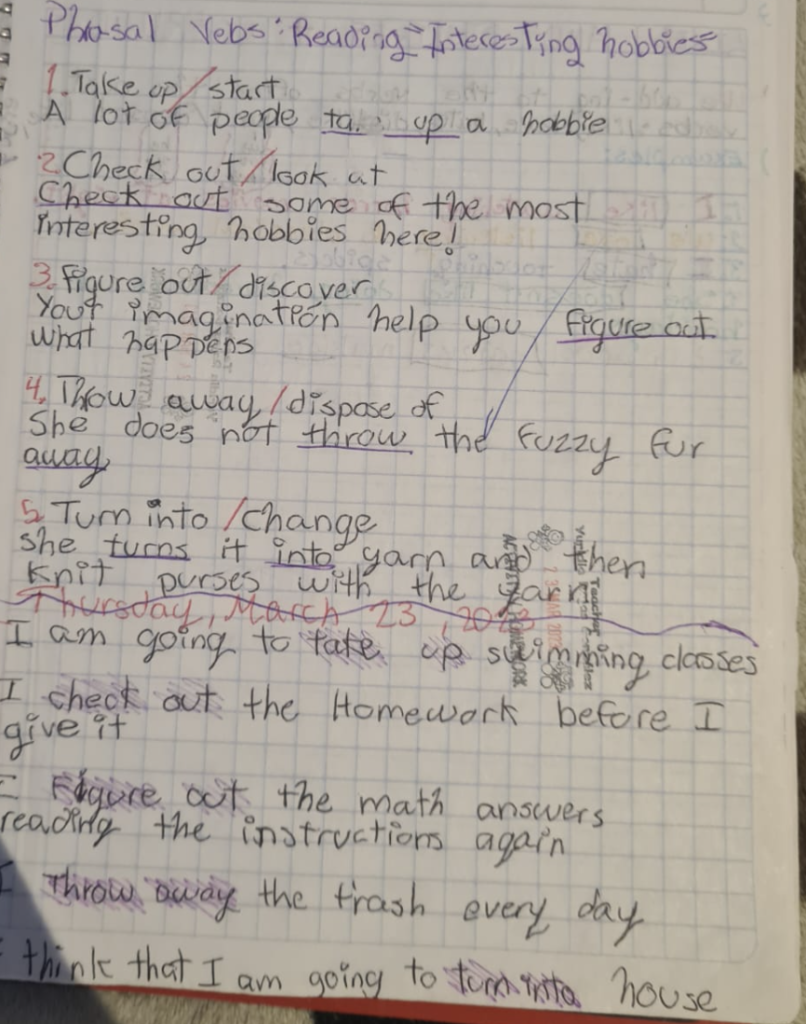 Phrasal Vebs: Reading "Interesting hobbies"
1. Take up/start
A lot of people ta. up a hobbie
2 Check out/look at
Check out some of the most
interesting hobbies here!
3. Figure out/discover
Your imagination help you figure out
what happens
4. Throw away/dispose of
She does not throw the fuzzy fur
away
5. Turn into/change
She turns it into yarn and then
Knit purses with the yarn
Thursday, March 23, 2023
I am going to take up swimming classes
I check out the Homework before I
give it
I Figure out the math answers
reading the instructions again
I Throw away the trash every day
I think that I am going to turn into house